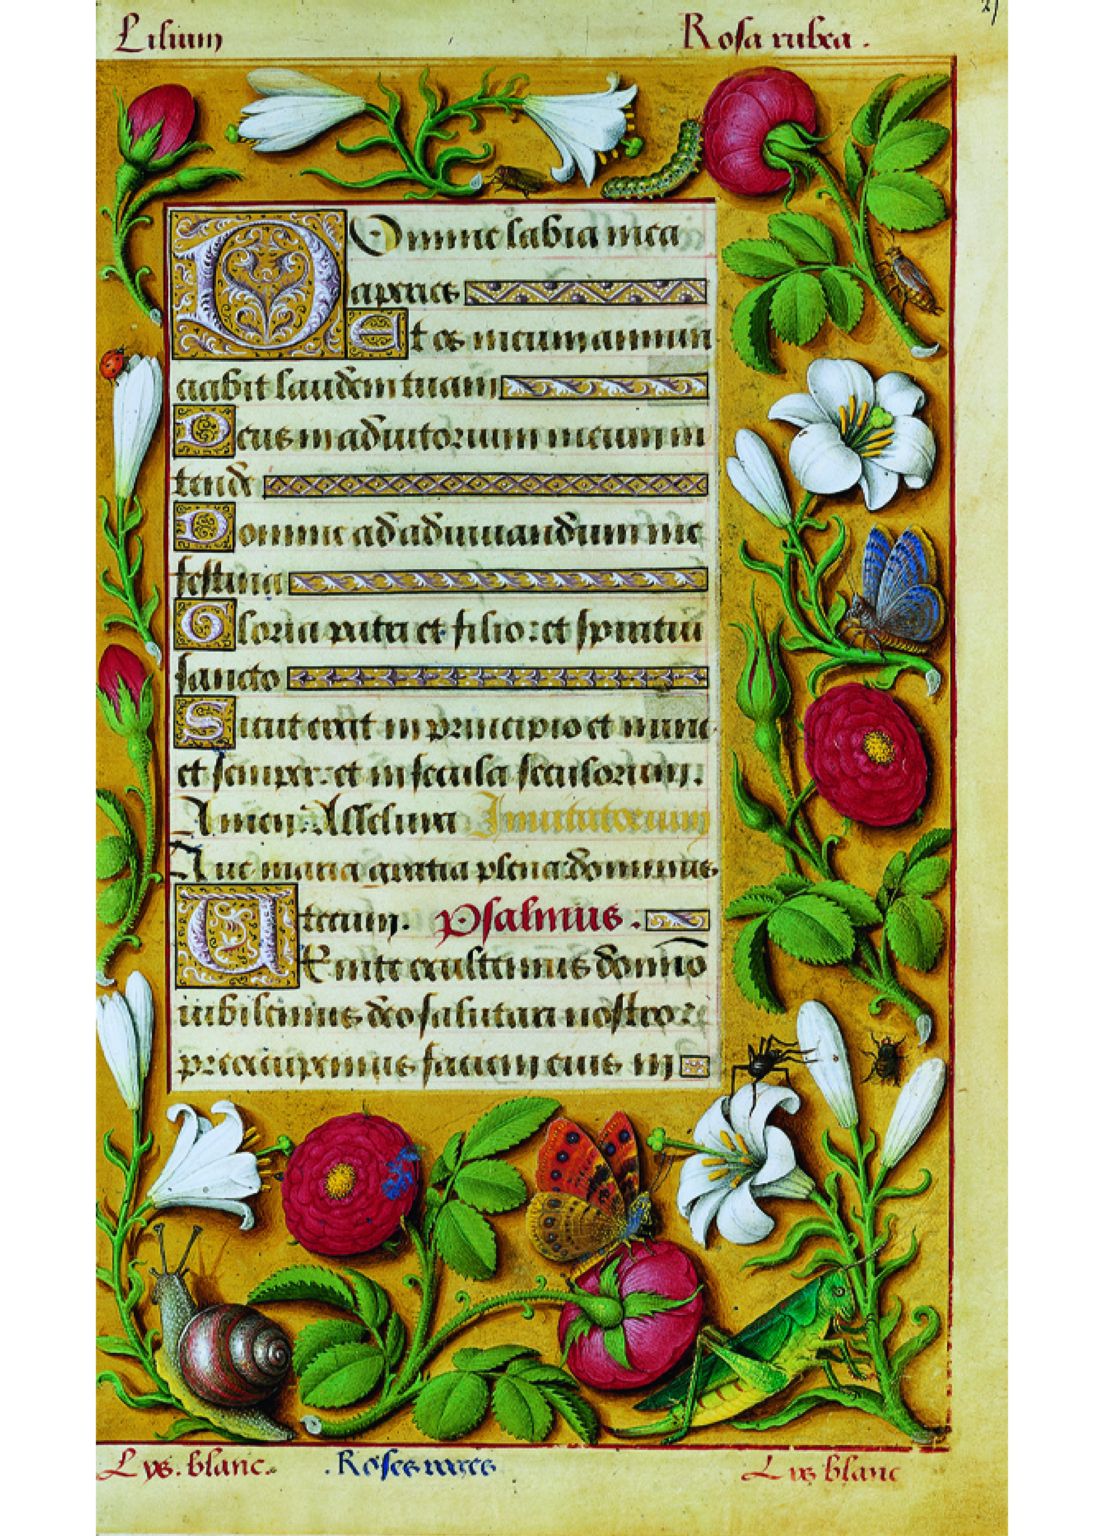 Lilium
Rosa rubea.
Domine labia mea
aperies
Et os meum annun
ciabit laudem tuam
Deus in adiutorium meum in
tende
Domine ad adiuuandum me
festina
Gloria patri et filio: et spiritui
sancto
Sicut erat in principio et nunc
et semper: et in secula seculorum.
Amen. Alleluya Inuitatorium
Aue maria gratia plena dominus
tecum. Psalmus.
Uenite exultemus domino
iubilemus deo salutari nostro:
preoccupemus faciem eius in
Lys. blanc.
Roses
Lis blanc